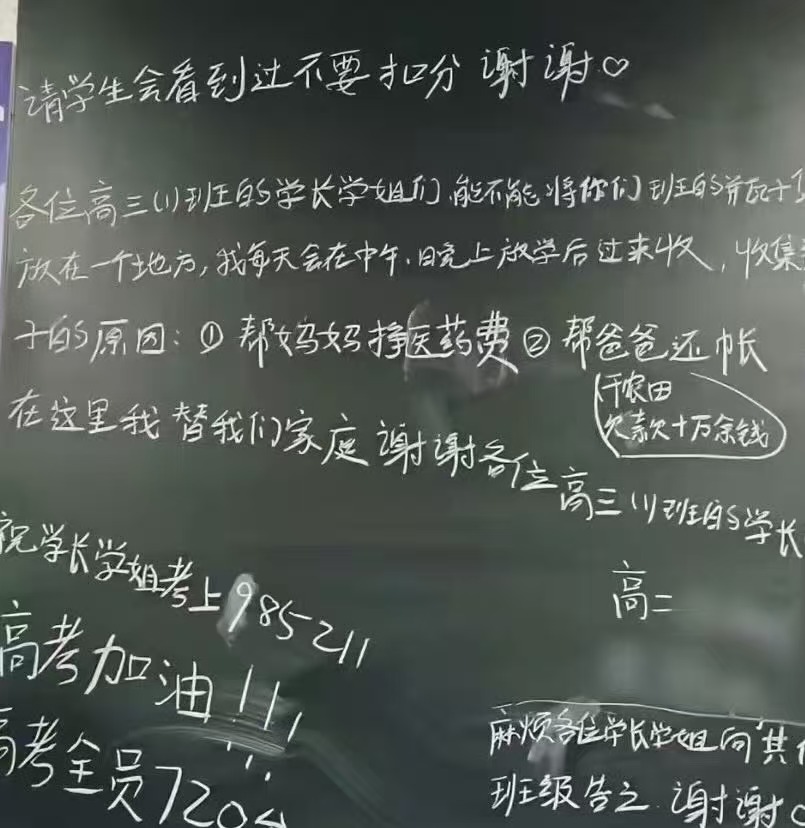 请学生会看到过不要扣分 谢谢♡
各位高三(1)班的学长学姐们,能不能将你们班的并瓦子
放在一个地方,我每天会在中午、晚上放学后过来收,收集
子的原因:① 帮妈妈挣医药费 ② 帮爸爸还帐
(干农田
欠款十万余钱
在这里我替我们家庭谢谢各位高三(1)班的学长
高二
祝学长学姐考上985 211
高考加油!!!
高考全员720
麻烦各位学长学姐向其
班级告之 谢谢